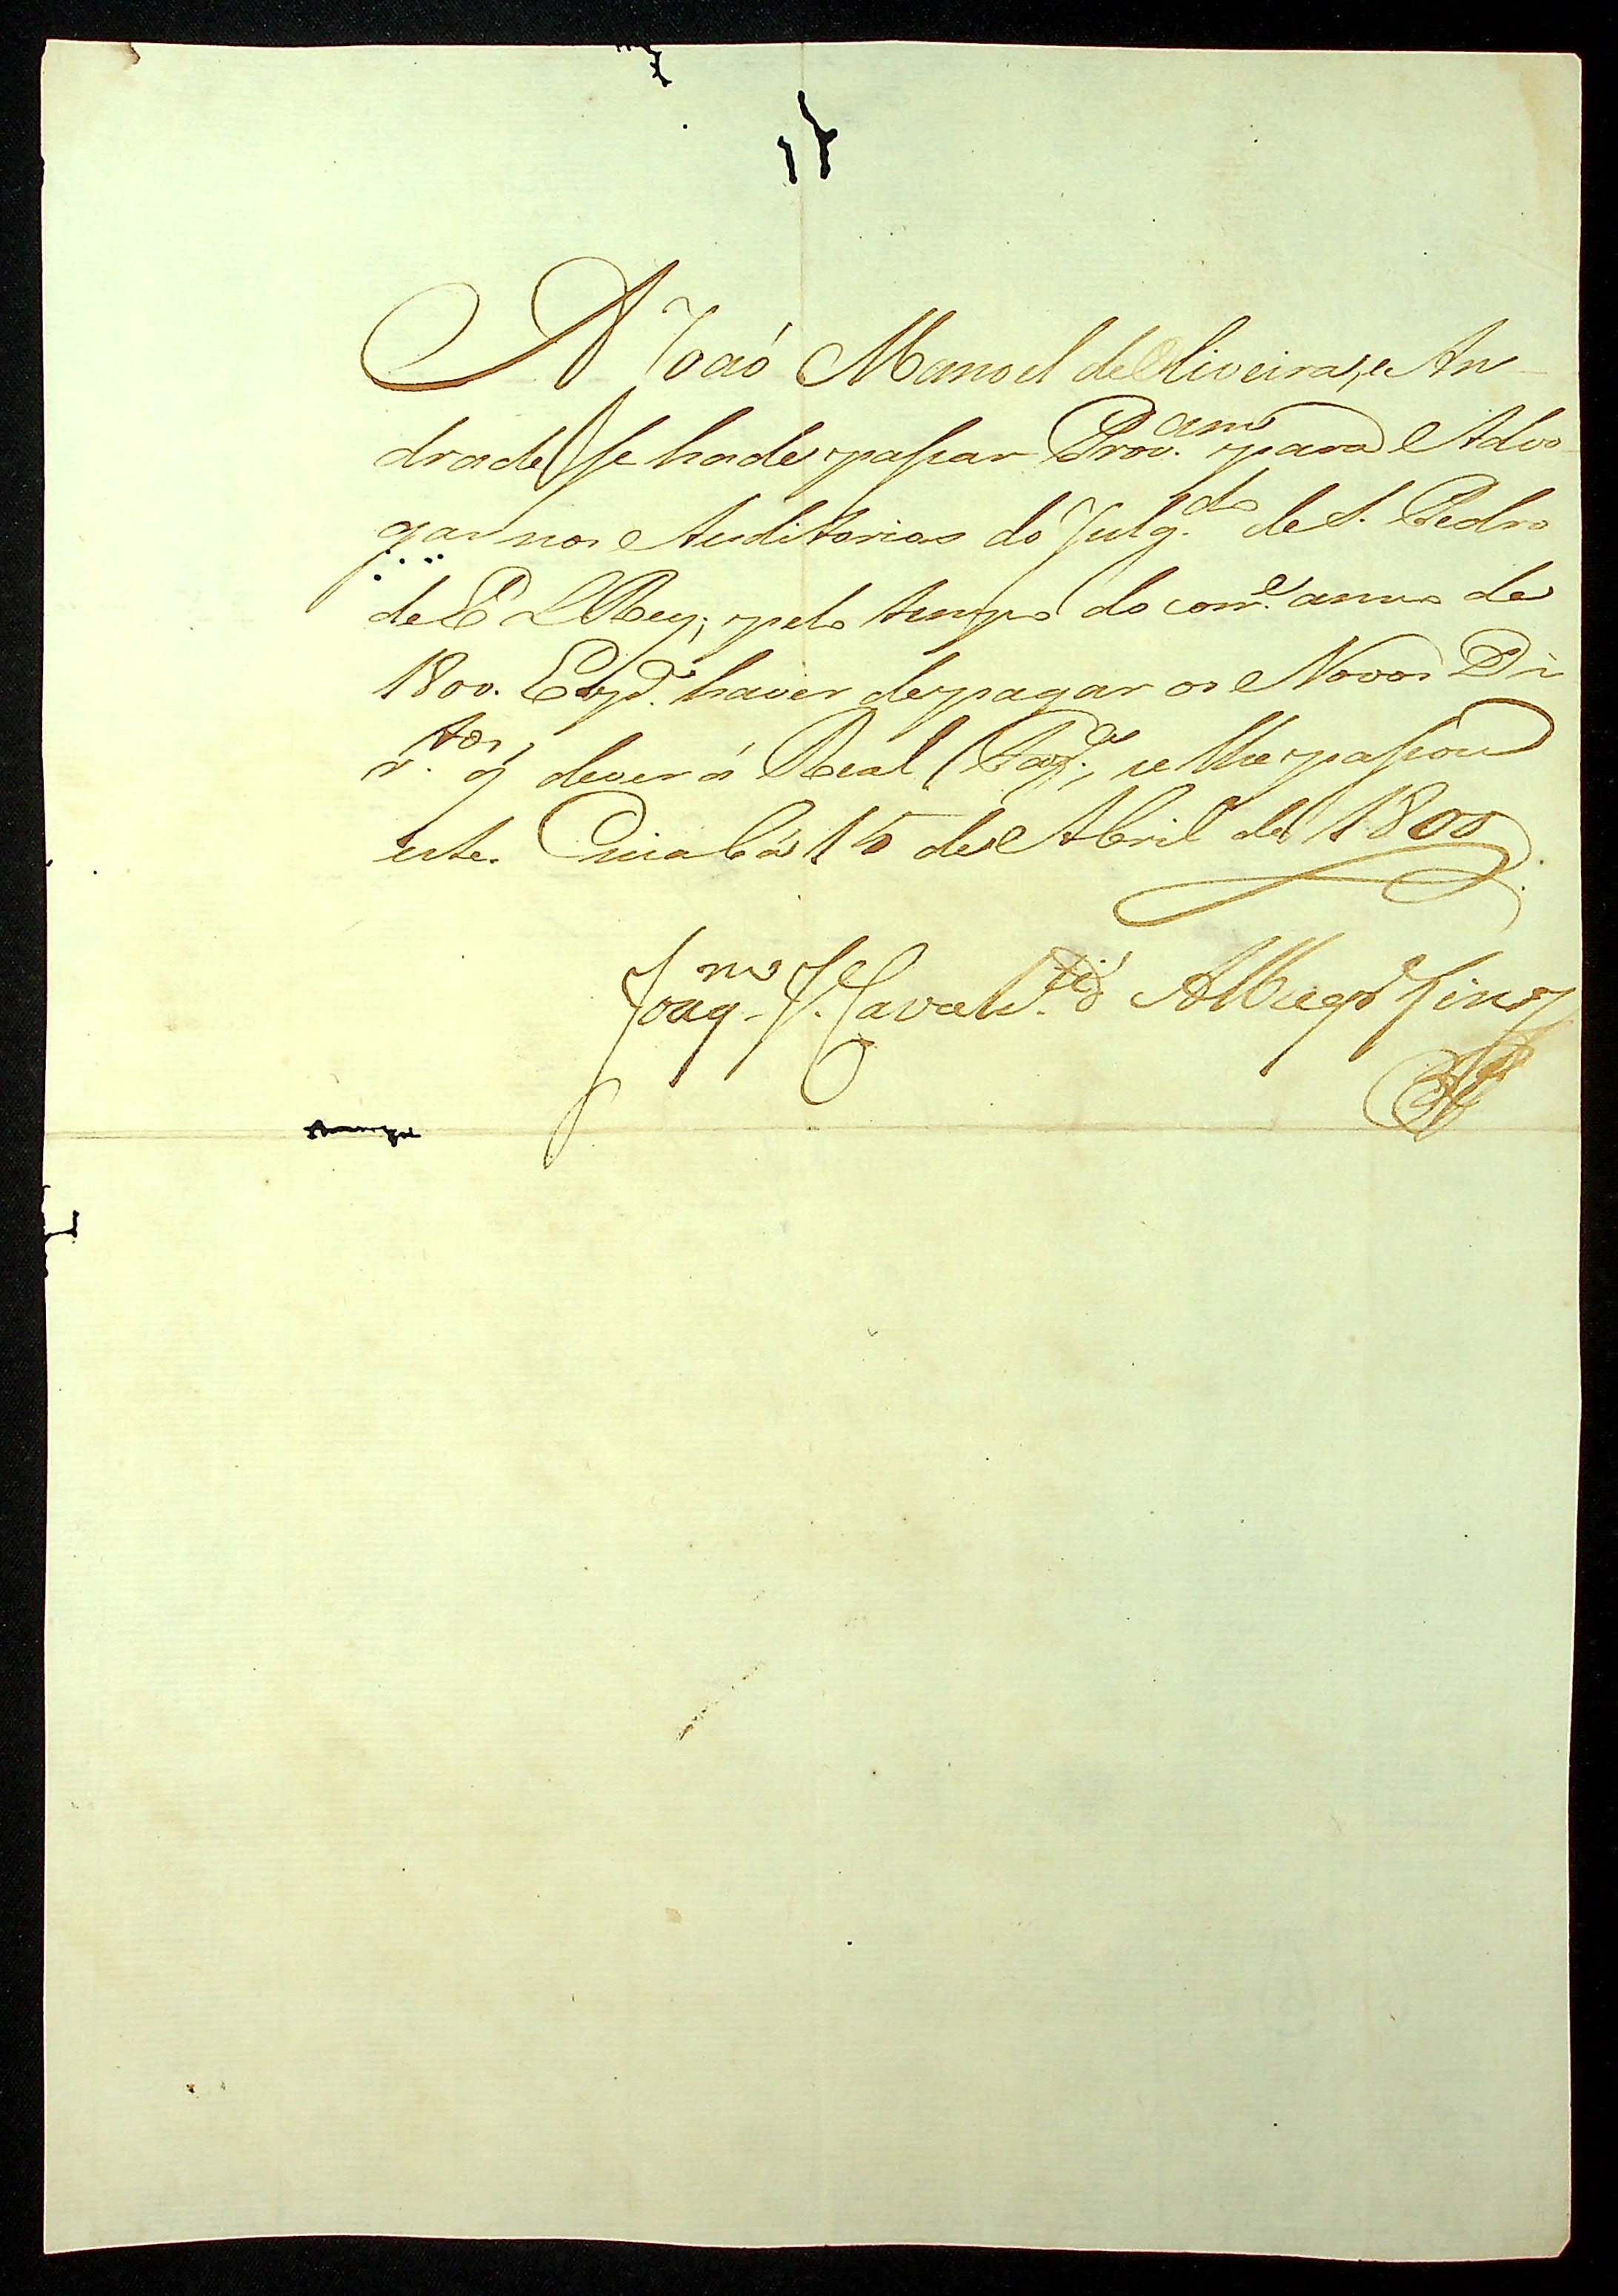 A João Manoel de Oliveira, e An-
drade se hade passar Prov.am para Advo-
gar nos Auditorios do Julg.do de S. Pedro
de El Rey, pelo tempo do corr.e anno de
1800. E p.a haver de pagar os Novos Di-
r.tos, q̃ dever á Real Faz.da, se lhe passou
este. Cuiabá 15 de Abril de 1800
Joaq.m J. Cavalc.ti d'Albuq.e Lins